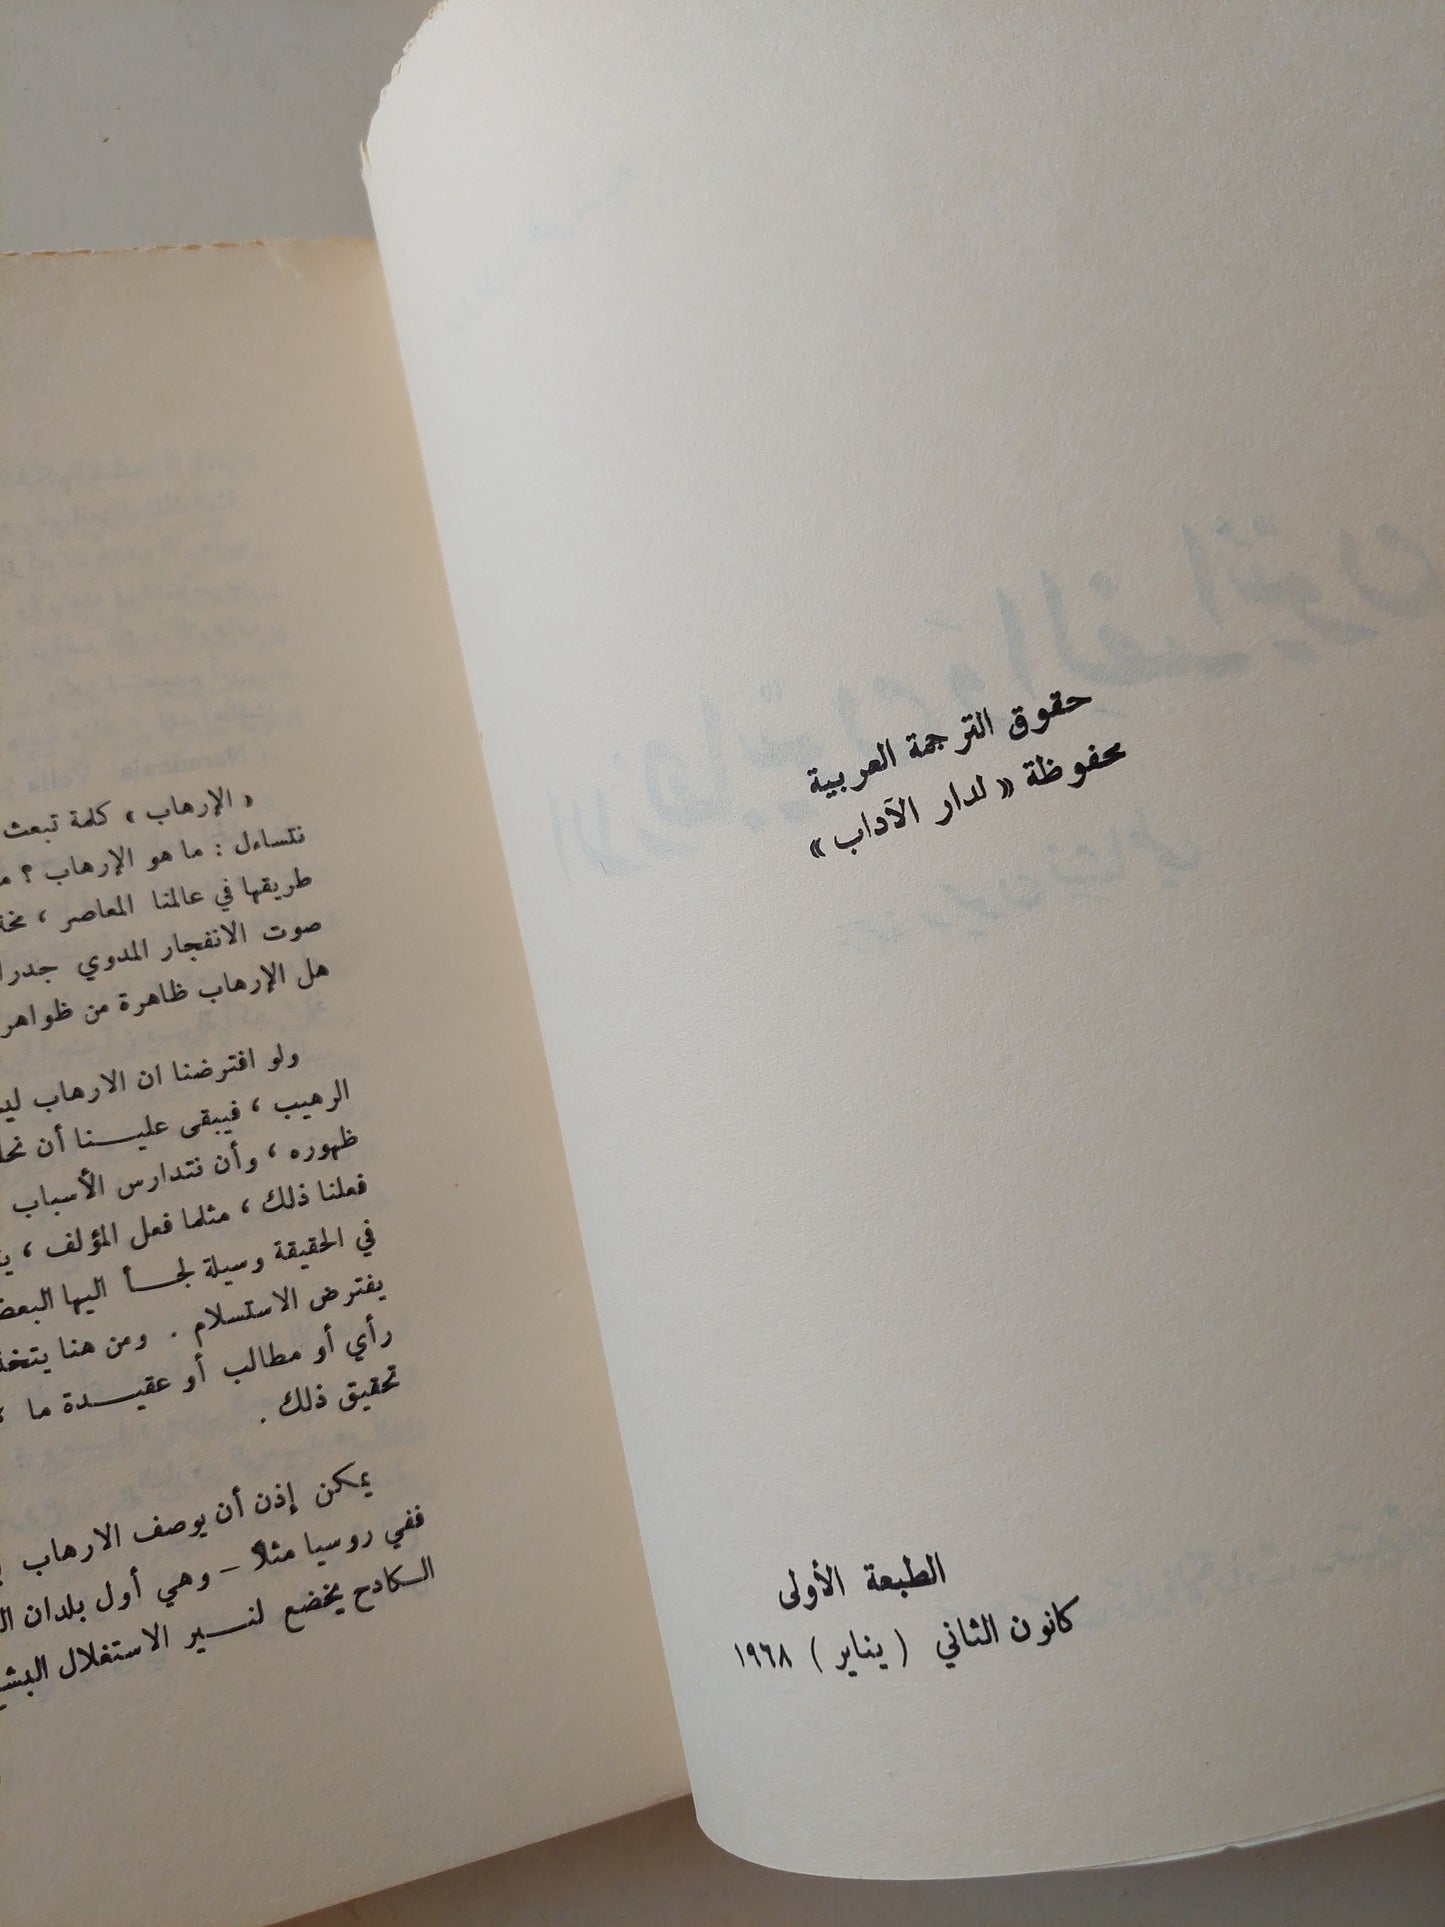 حقوق الترجمة العربية
محفوظة « لدار الآداب »
الطبعة الأولى
كانون الثاني ( يناير ) ١٩٦٨
« الإرهاب » كلمة تبعث
نتساءل : ما هو الإرهاب ؟
طريقها في عالمنا المعاصر ،
صوت الانفجار المدوي
هل الإرهاب ظاهرة من ظواهر
ولو افترضنا ان الارهاب
الرهيب ، فيبقى علينا أن
ظهوره ، وأن نتدارس الأسباب
فعلنا ذلك ، مثلما فعل المؤلف ،
في الحقيقة وسيلة لجأ اليها
يفترض الاستسلام . ومن هنا
رأي أو مطالب أو عقيدة ما
تحقيق ذلك .
يمكن إذن أن يوصف الارهاب
ففي روسيا مثلاً – وهي أول بلدان
الكادح يخضع لنير الاستغلال